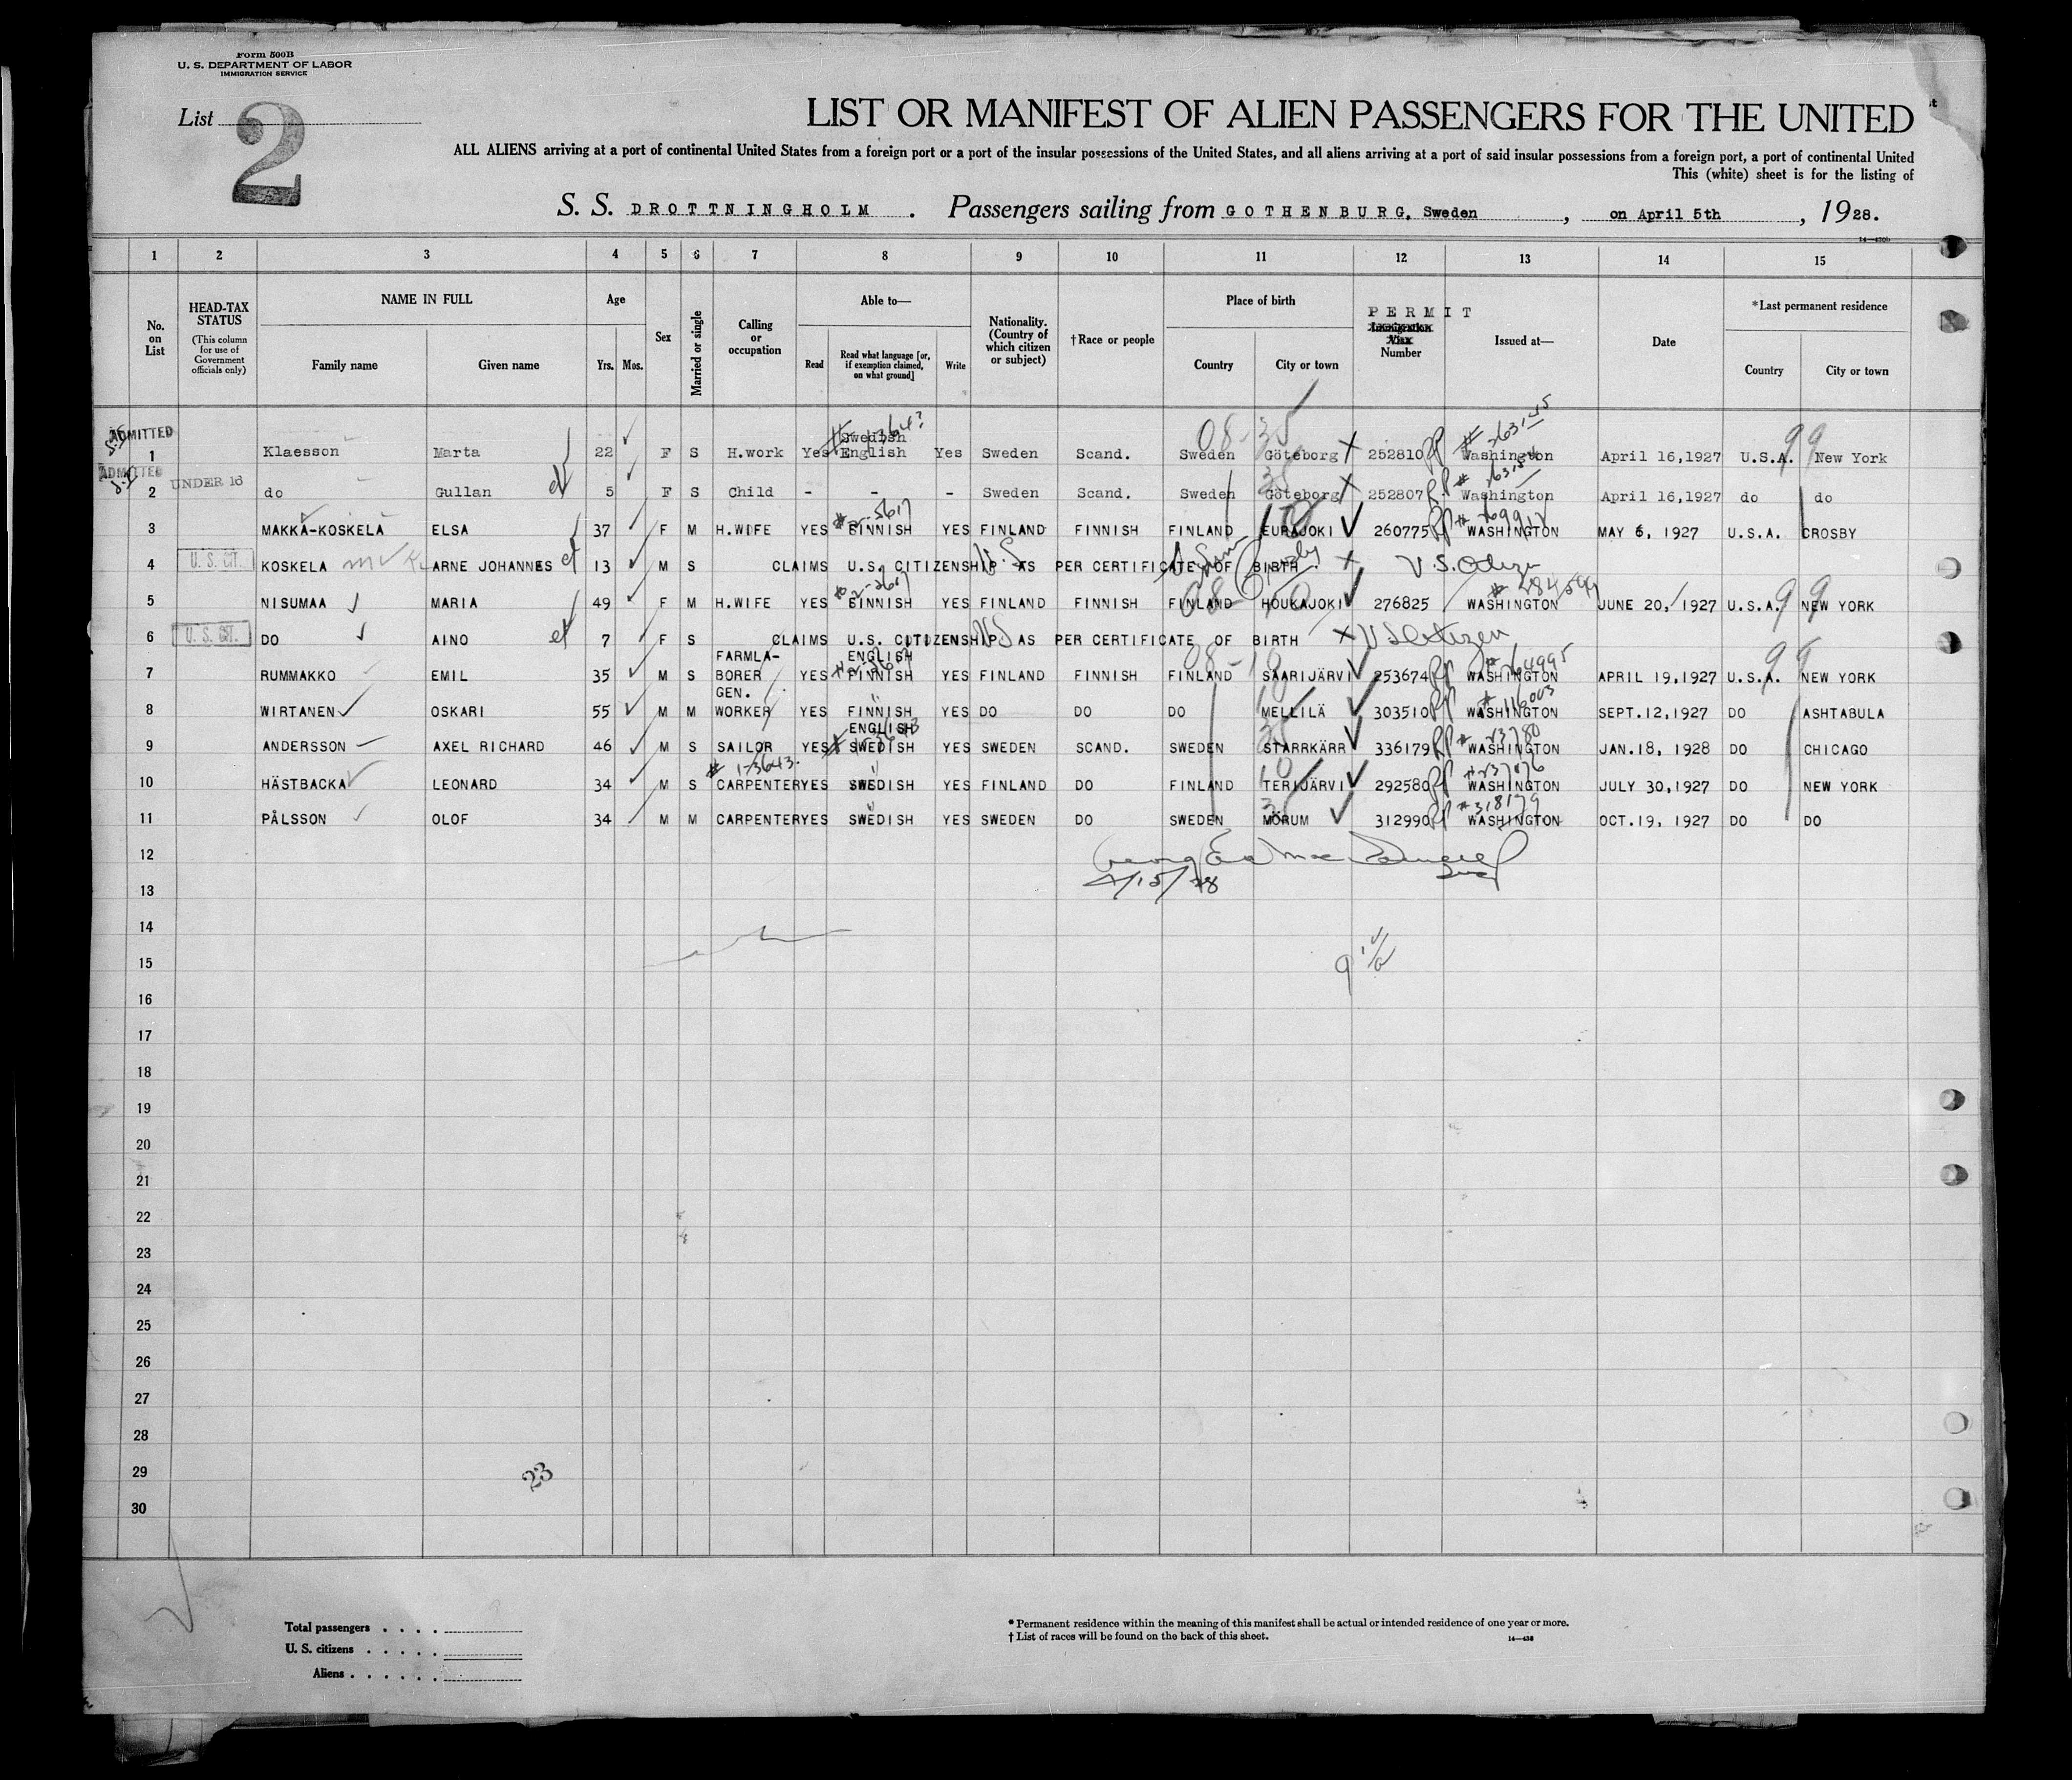 Form 500B
U. S. DEPARTMENT OF LABOR
IMMIGRATION SERVICE
List 2
LIST OR MANIFEST OF ALIEN PASSENGERS FOR THE UNITED
ALL ALIENS arriving at a port of continental United States from a foreign port or a port of the insular possessions of the United States, and all aliens arriving at a port of said insular possessions from a foreign port, a port of continental United
This (white) sheet is for the listing of
S. S. DROTTNINGHOLM . Passengers sailing from GOTHENBURG, Sweden , on April 5th , 1928.
1 2 3 4 5 6 7 8 9 10 11 12 13 14 15
No. on List
HEAD-TAX STATUS
(This column for use of Government officials only)
NAME IN FULL
Family name Given name
Age
Yrs. Mos.
Sex
Married or single
Calling or occupation
Able to—
Read Read what language [or, if exemption claimed, on what ground] Write
Nationality. (Country of which citizen or subject)
†Race or people
Place of birth
Country City or town
PERMIT
Immigration Visa Number
Issued at—
Date
*Last permanent residence
Country City or town
ADMITTED
Swedish
1 Klaesson Marta 22 F S H.work Yes English Yes Sweden Scand. Sweden Göteborg 252810 Washington April 16,1927 U.S.A. New York
ADMITTED
UNDER 16
2 do Gullan 5 F S Child - - - Sweden Scand. Sweden Göteborg 252807 Washington April 16,1927 do do
3 MAKKA-KOSKELA ELSA 37 F M H.WIFE YES FINNISH YES FINLAND FINNISH FINLAND EURAJOKI 260775 WASHINGTON MAY 6, 1927 U.S.A. CROSBY
4 U. S. CIT. KOSKELA ARNE JOHANNES 13 M S CLAIMS U.S. CITIZENSHIP AS PER CERTIFICATE OF BIRTH U.S. Citizen
5 NISUMAA MARIA 49 F M H.WIFE YES FINNISH YES FINLAND FINNISH FINLAND HOUKAJOKI 276825 WASHINGTON JUNE 20, 1927 U.S.A. NEW YORK
6 U. S. CIT. DO AINO 7 F S CLAIMS U.S. CITIZENSHIP AS PER CERTIFICATE OF BIRTH U S Citizen
FARMLA- ENGLISH
7 RUMMAKKO EMIL 35 M S BORER YES FINNISH YES FINLAND FINNISH FINLAND SAARIJÄRVI 253674 WASHINGTON APRIL 19,1927 U.S.A. NEW YORK
GEN.
8 WIRTANEN OSKARI 55 M M WORKER YES FINNISH YES DO DO DO MELLILÄ 303510 WASHINGTON SEPT.12,1927 DO ASHTABULA
ENGLISH
9 ANDERSSON AXEL RICHARD 46 M S SAILOR YES SWEDISH YES SWEDEN SCAND. SWEDEN STARRKÄRR 336179 WASHINGTON JAN.18, 1928 DO CHICAGO
# 1-3643.
10 HÄSTBACKA LEONARD 34 M S CARPENTER YES SWEDISH YES FINLAND DO FINLAND TERIJÄRVI 292580 WASHINGTON JULY 30,1927 DO NEW YORK
# 318179
11 PÅLSSON OLOF 34 M M CARPENTER YES SWEDISH YES SWEDEN DO SWEDEN MÖRUM 312990 WASHINGTON OCT.19, 1927 DO DO
12
13 4/15/28
14
15
16
17
18
19
20
21
22
23
24
25
26
27
28
29 23
30
Total passengers . . . .
U. S. citizens . . . . .
Aliens . . . . . .
* Permanent residence within the meaning of this manifest shall be actual or intended residence of one year or more.
† List of races will be found on the back of this sheet.
14—438